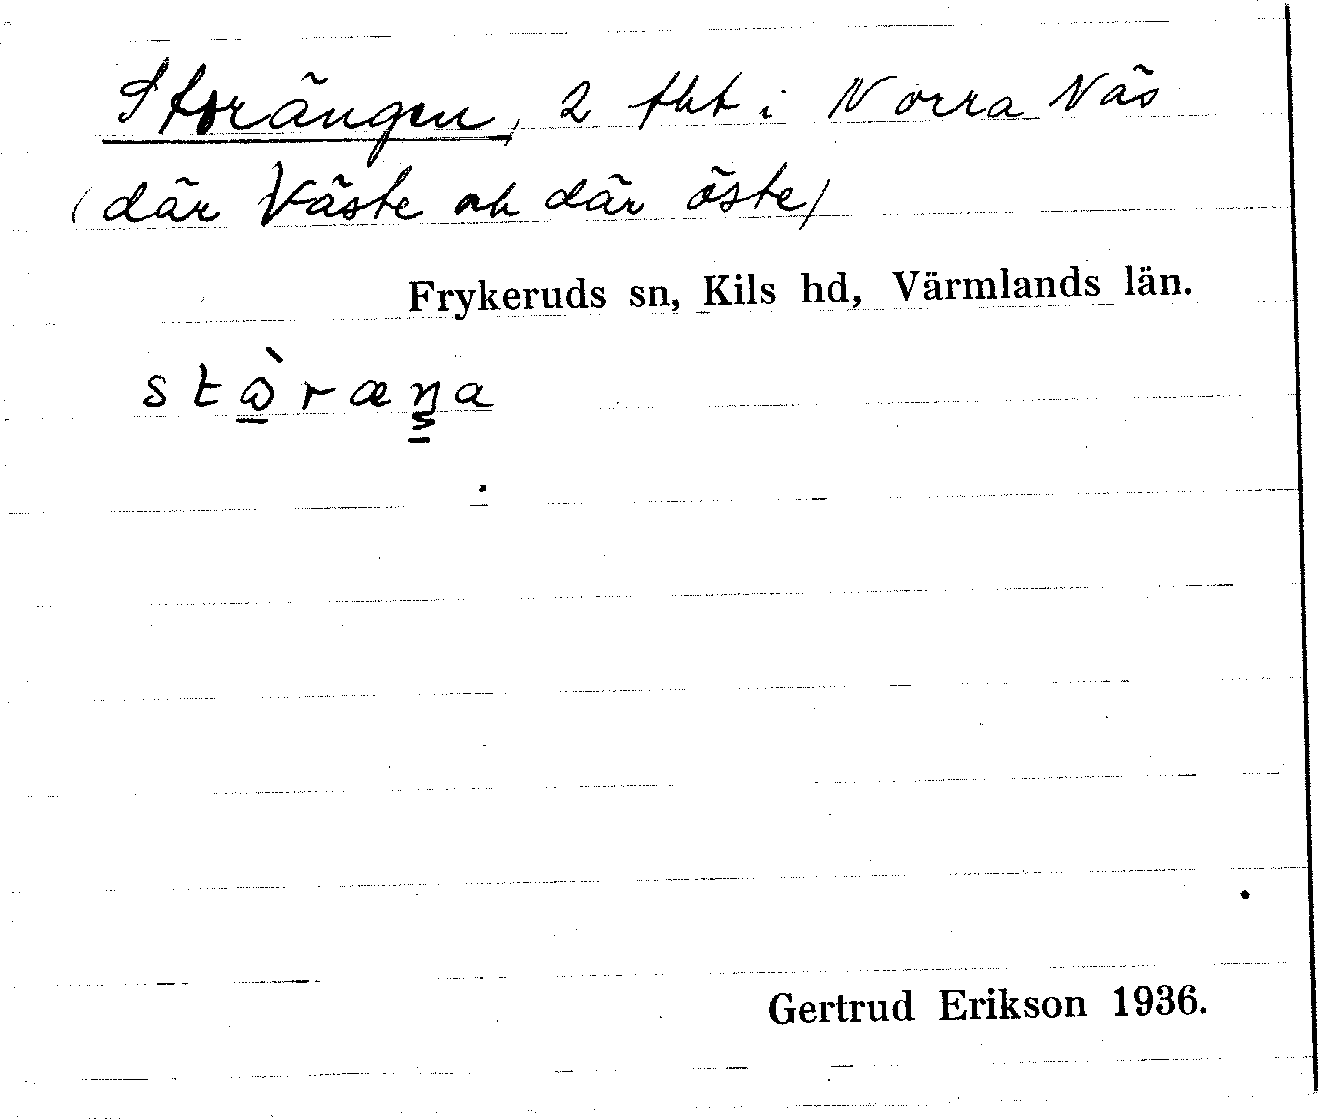 Storängen, 2 tkt i Norra Näs
(där Väste och där öste)
Frykeruds sn, Kils hd, Värmlands län.
stὼ̲ræŋ̲a
Gertrud Erikson 1936.